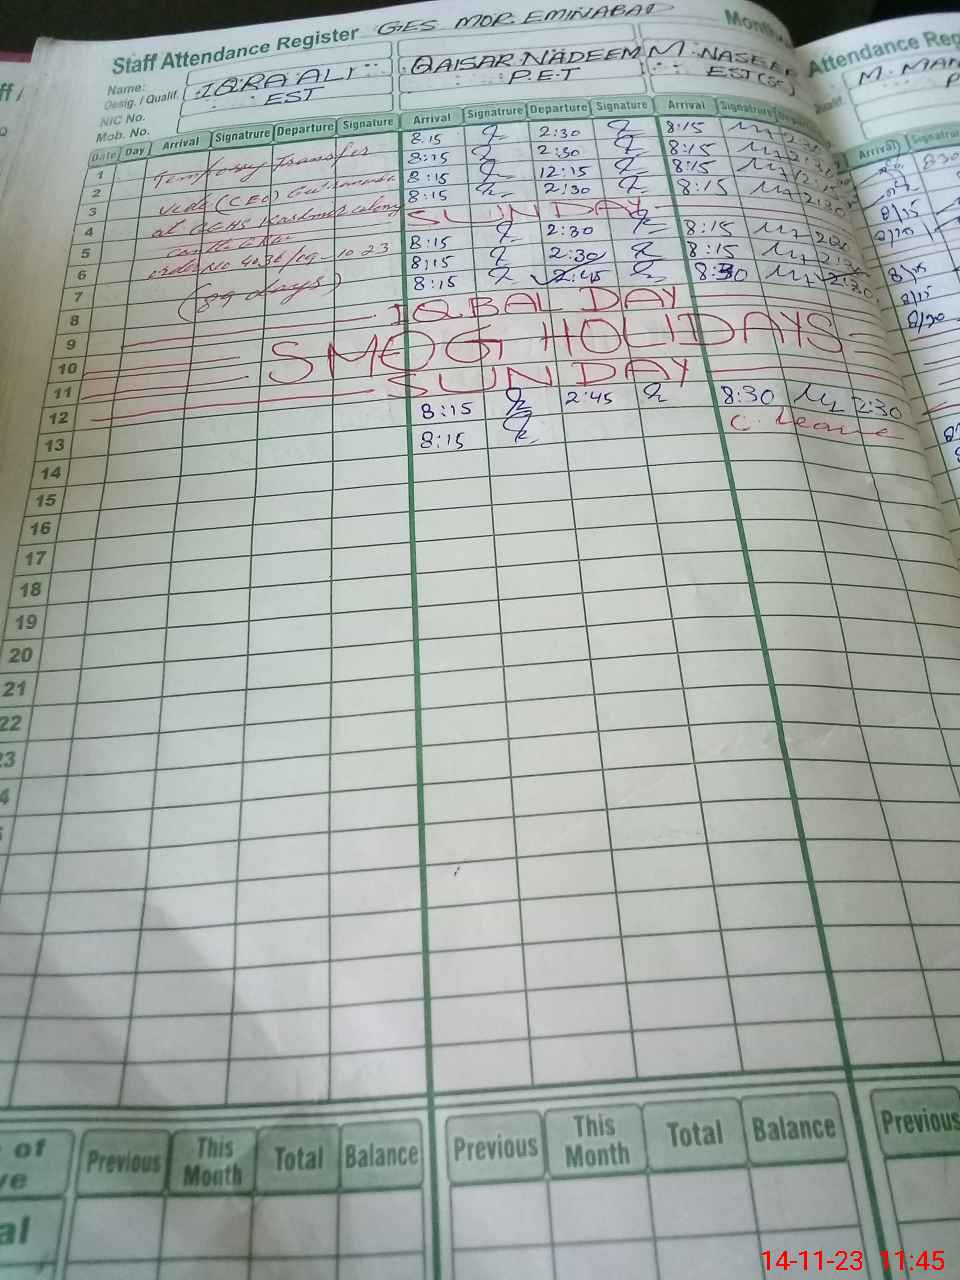 Staff Attendance Register GES MOR. EMINABAD Month
Name: IQRA ALI QAISAR NADEEM M. NASEER
Desig. / Qualif. EST P.E.T EST(SC)
NIC No.
Mob. No.
Attendance Reg
M. MAN
Date Day Arrival Signatrure Departure Signature Arrival Signatrure Departure Signature Arrival Signatrure Departure
Arrival Signatrure
Temporary Transfer
vide (CEO)
at GGHS Kashmir colony
order No 4036/ 10-23
(89 days)
1 8:15 2:30 8:15 2:30
2 8:15 2:30 8:15 2:30
3 8:15 12:15 8:15 12:15
4 8:15 2:30 8:15 2:30
5 SUNDAY
6 8:15 2:30 8:15 2:30
7 8:15 2:30 8:15 2:30
8 8:15 2:45 8:30 2:30
9 IQBAL DAY
10 SMOG HOLIDAYS
11
12 SUNDAY
13 8:15 2:45 8:30 2:30
14 8:15 C. Leave
15
16
17
18
19
20
21
22
23
4
of
ve
al
Previous This Month Total Balance Previous This Month Total Balance Previous
14-11-23 11:45